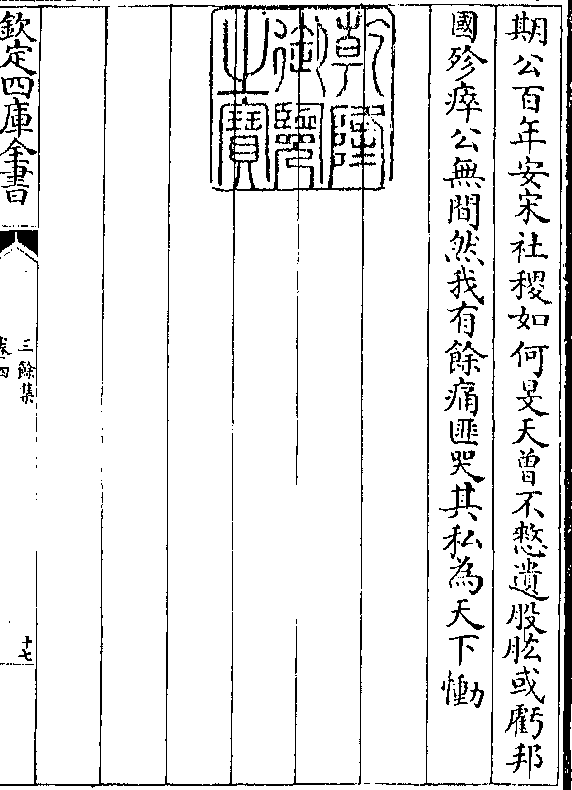 期公百年安宋社稷如何旻天曾不憗遺股肱或虧邦
國殄瘁公無間然我有餘痛匪哭其私為天下慟
乾隆
御覽
之寶
欽定四庫全書
三餘集
卷四
十七